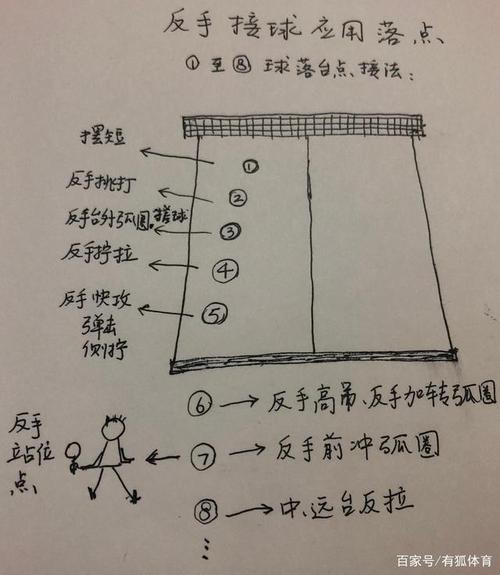 反手接球应用落点
①至⑧球落台点接法:
摆短 ①
反手挑打 ②
反手台外弧圈.搓球 ③
反手拧拉 ④
反手快攻 ⑤
弹击
侧拧
⑥→反手高吊、反手加转弧圈
反手
站位
点
⑦→反手前冲弧圈
⑧→中、远台反拉
百家号/有狐体育